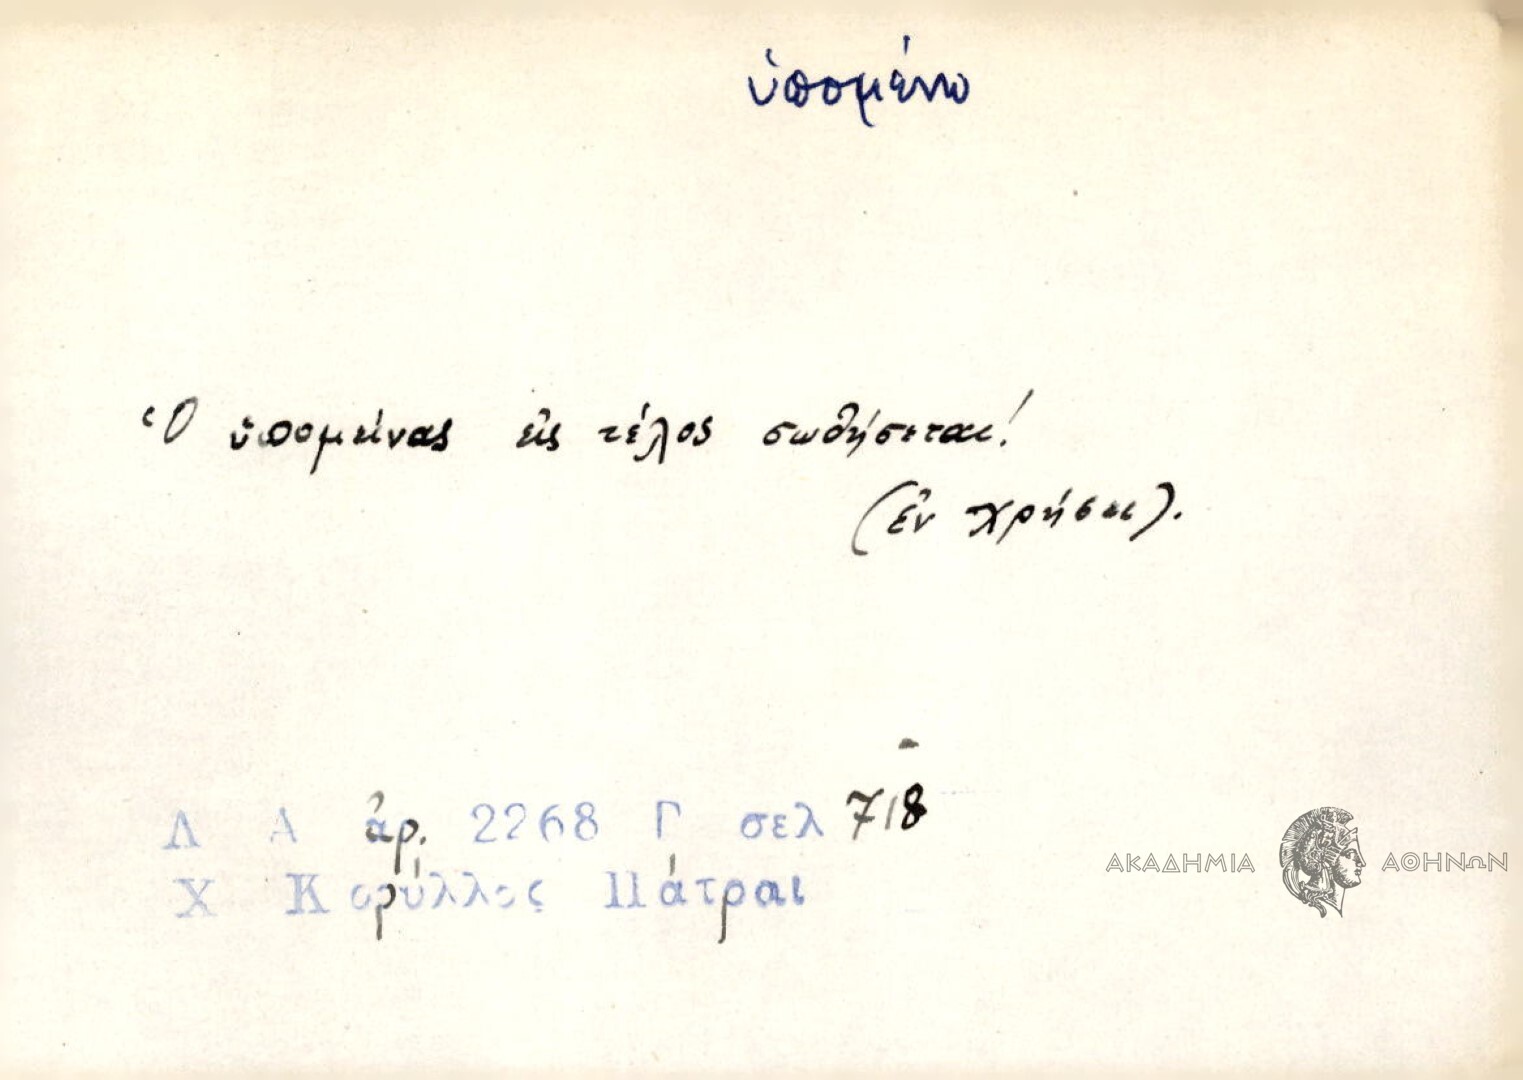 ὑπομένω
Ὁ ὑπομείνας εἰς τέλος σωθήσεται!
(ἐν χρήσει).
Λ Α ἀρ. 2268 Γ σελ 718
Χ Κορύλλος Πάτραι
ΑΚΑΔΗΜΙΑ ΑΘΗΝΩΝ